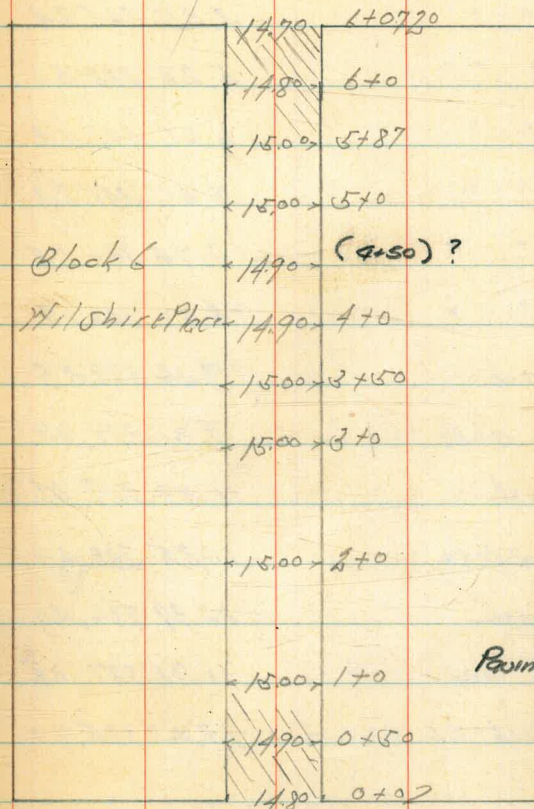 14.70 6+0720
14.80 6+0
15.00 5+87
15.00 5+0
Block 6 14.90 (4+50) ?
Wilshire Place 14.90 4+0
15.00 3+50
15.00 3+0
15.00 2+0
15.00 1+0
Pavin
14.90 0+50
14.80 0+02